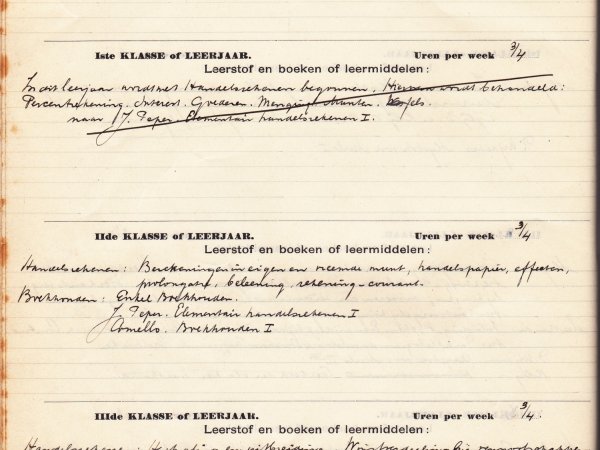 Iste KLASSE of LEERJAAR. Uren per week 3/4
Leerstof en boeken of leermiddelen:
In dit leerjaar wordt met Handelsrekenen begonnen. Hiervan wordt behandeld:
Percentrekening. Interest. Goederen. Menging. Munten. Wissels.
naar J. Peper. Elementair handelsrekenen I.
IIde KLASSE of LEERJAAR. Uren per week 3/4
Leerstof en boeken of leermiddelen:
Handelsrekenen: Berekeningen in eigen en vreemde munt, handelspapier, effecten,
prolongatie, beleening, rekening-courant.
Boekhouden: Enkel Boekhouden.
J. Peper. Elementair handelsrekenen I
Comello. Boekhouden I
IIIde KLASSE of LEERJAAR. Uren per week 3/4
Leerstof en boeken of leermiddelen:
Handelsrekenen: en uitbreiding. Winstverdeeling bij vennootschappen